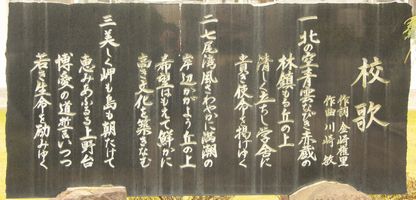 校歌
作詞 金崎雅里
作曲 川崎 敏
一 北の空青雲なびき赤蔵の
林鎮もる丘の上
清しく立てし学舎に
貴き使命を掲げゆく
二 七尾湾風さわやかに潮の
岸辺かがよう丘の上
希望はもえて鮮かに
高き文化を築きなむ
三 美しく岬も島も朝たけて
恵みあふるる上野台
博愛の道誓いつつ
若き生命を励みゆく